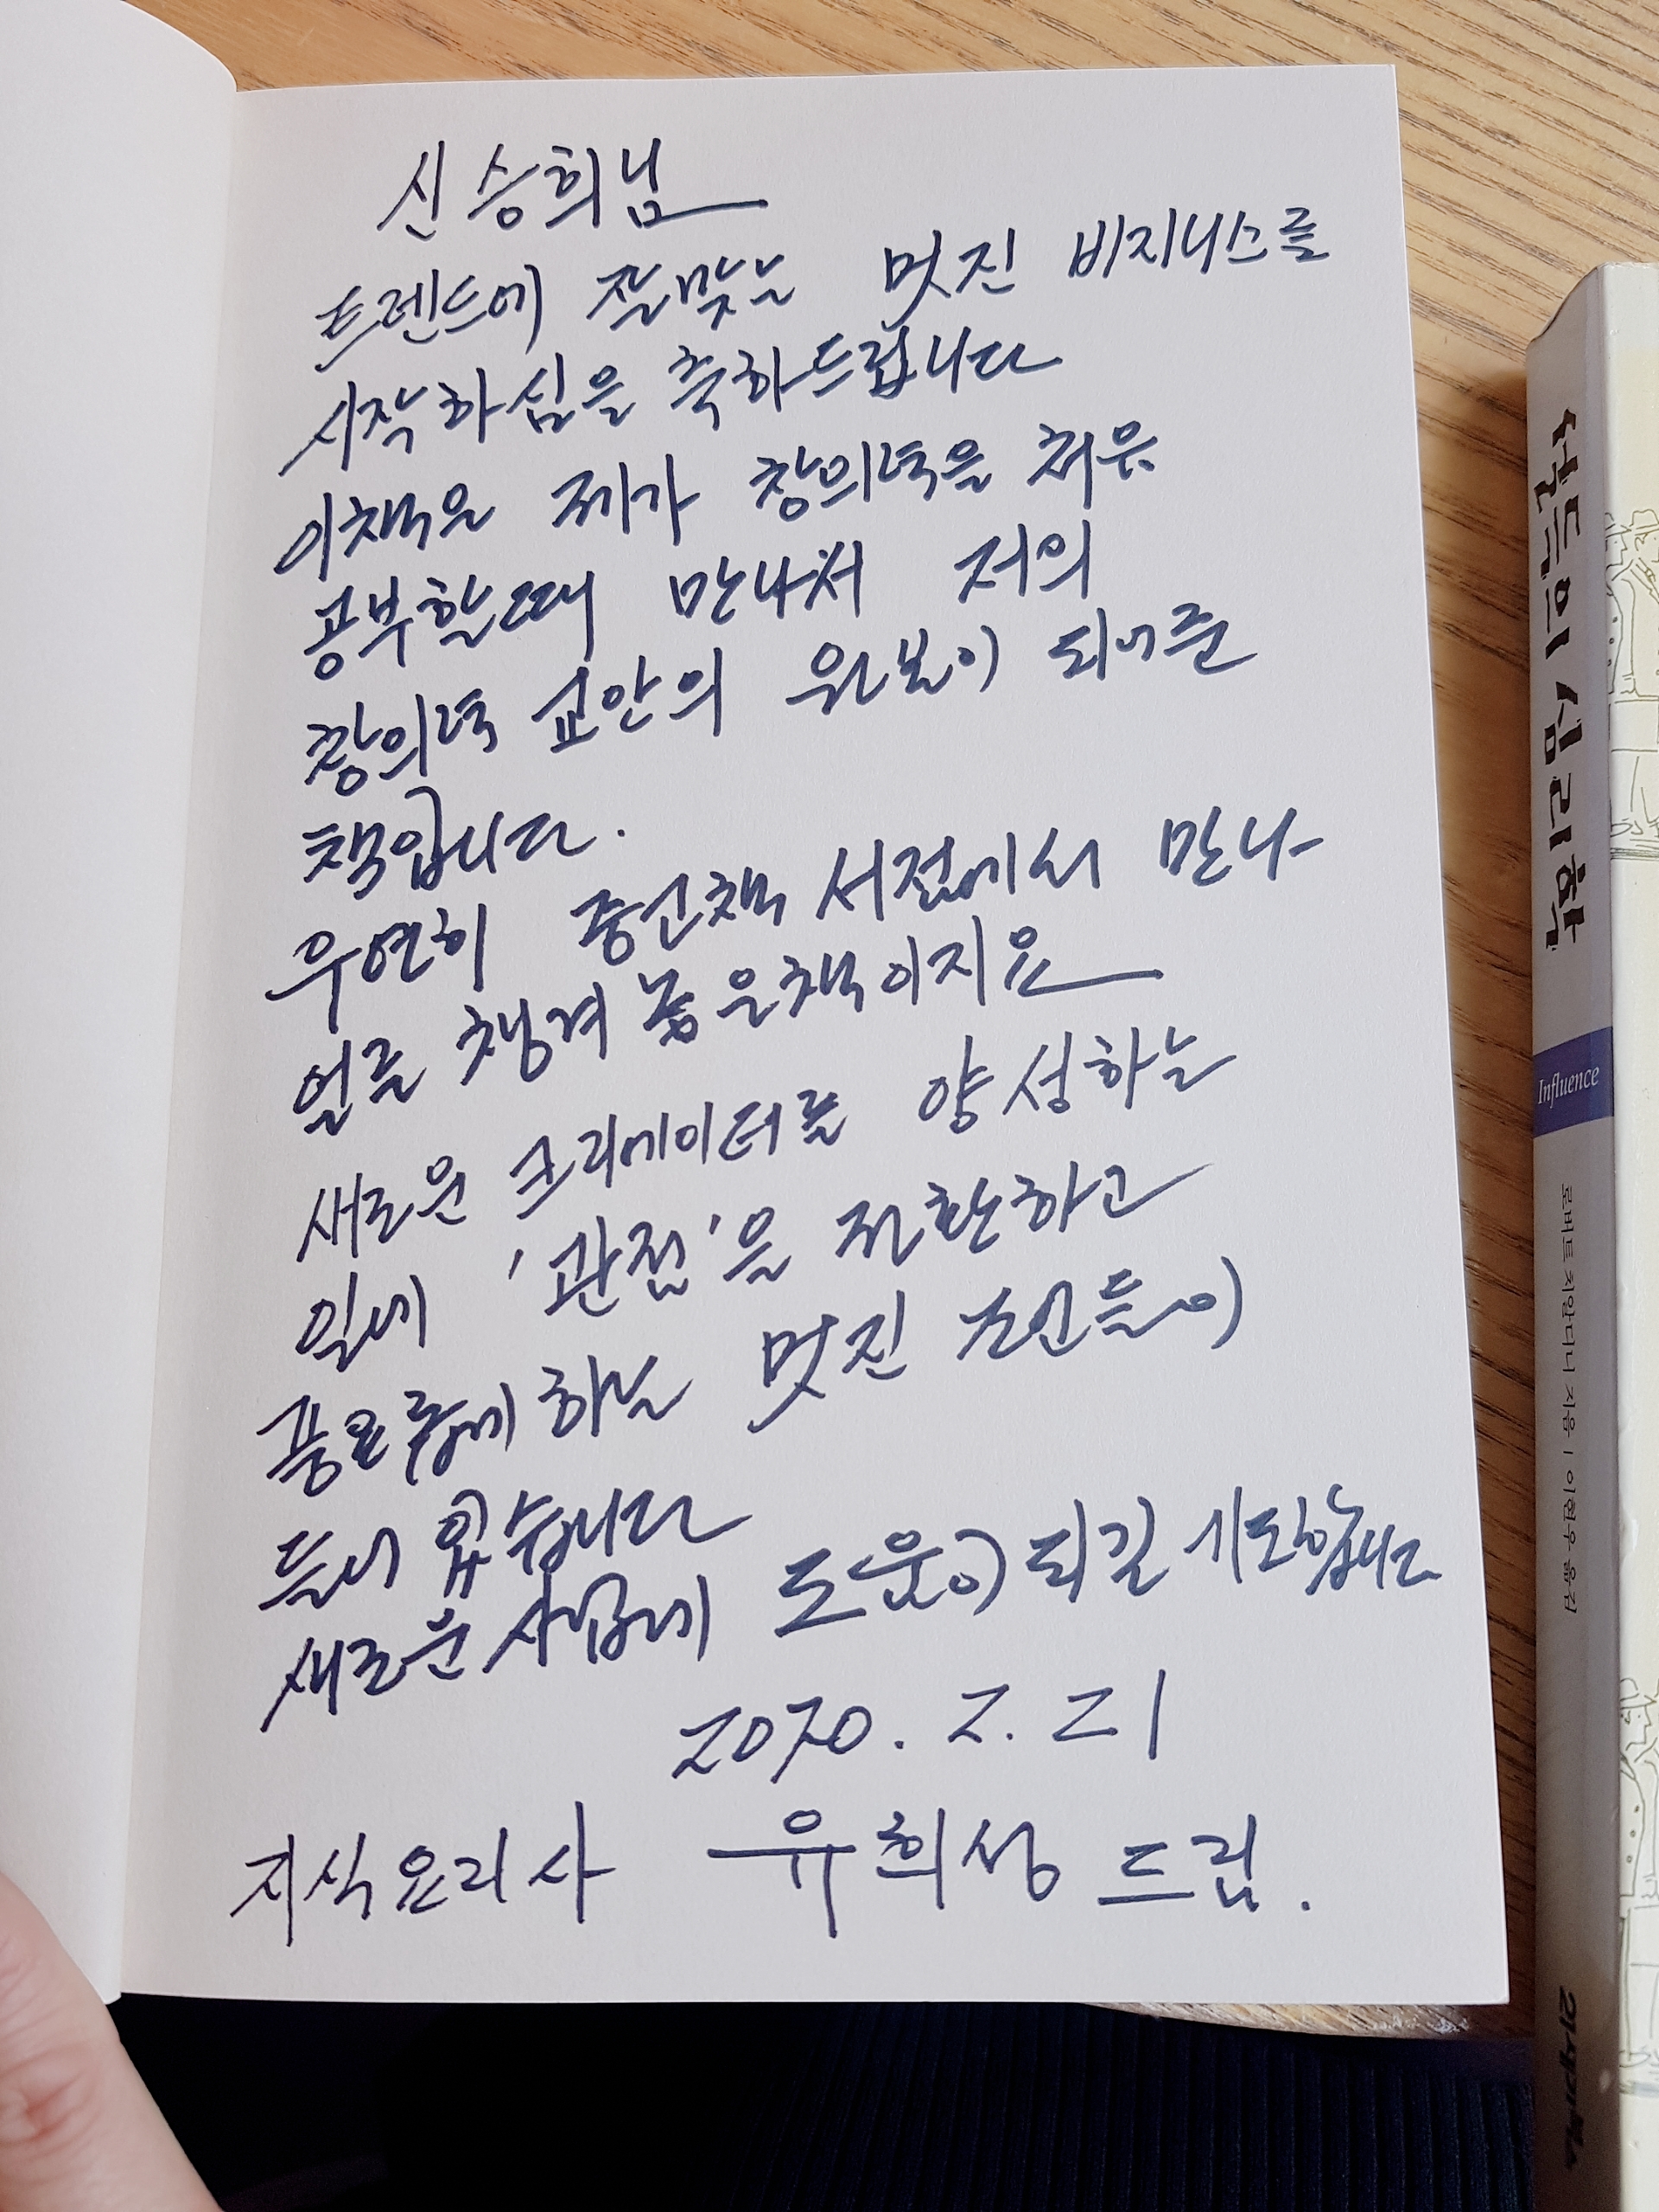 신승희님
트렌드에 잘맞는 멋진 비지니스를
시작하심을 축하드립니다
이책은 제가 창의력을 처음
공부할때 만나서 저의
창의력 교안의 원본이 되어준
책입니다.
우연히 중고책 서점에서 만나
얼른 챙겨 놓은책이지요
새로운 크리에이터를 양성하는
일에 '관점'을 전환하고
풍요롭게 하는 멋진 조언들이
들어 있습니다
새로운 사업에 도움이 되길 기도합니다
2020. 2. 21
지식요리사 유희성 드림.
설득의 심리학
Influence
로버트 치알디니 지음 | 이현우 옮김
21세기북스